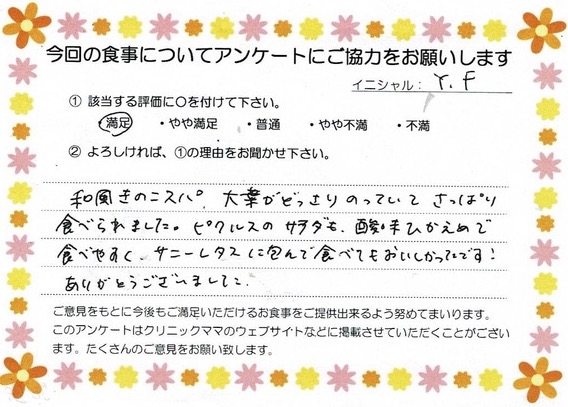 今回の食事についてアンケートにご協力をお願いします
イニシャル： Y.F
① 該当する評価に○を付けて下さい。
・満足 ・やや満足 ・普通 ・やや不満 ・不満
② よろしければ、①の理由をお聞かせ下さい。
和風きのこスパ、大葉がどっさりのっていて さっぱり
食べられました。ピクルスのサラダも、酸味ひかえめで
食べやすく、サニーレタスに包んで食べてもおいしかったです!
ありがとうございました。
ご意見をもとに今後もご満足いただけるお食事をご提供出来るよう努めてまいります。
このアンケートはクリニックママのウェブサイトなどに掲載させていただくことがござい
ます。たくさんのご意見をお願い致します。